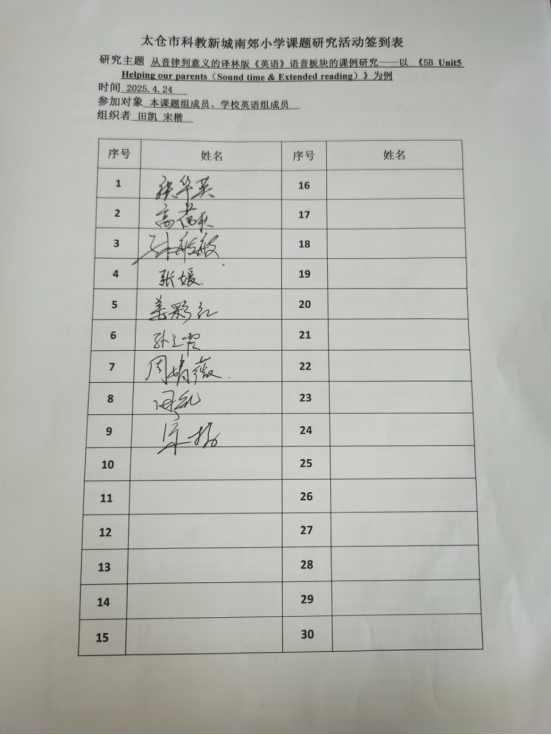 太仓市科教新城南郊小学课题研究活动签到表
研究主题 从音律到意义的译林版《英语》语音板块的课例研究——以 《5B Unit5
Helping our parents（Sound time & Extended reading）》为例
时间 2025.4.24
参加对象 本课题组成员、学校英语组成员
组织者 田凯 宋楷
序号 姓名 序号 姓名
1 16
2 17
3 18
4 张媛 19
5 姜彩红 20
6 21
7 周婧薇 22
8 田凯 23
9 宋楷 24
10 25
11 26
12 27
13 28
14 29
15 30